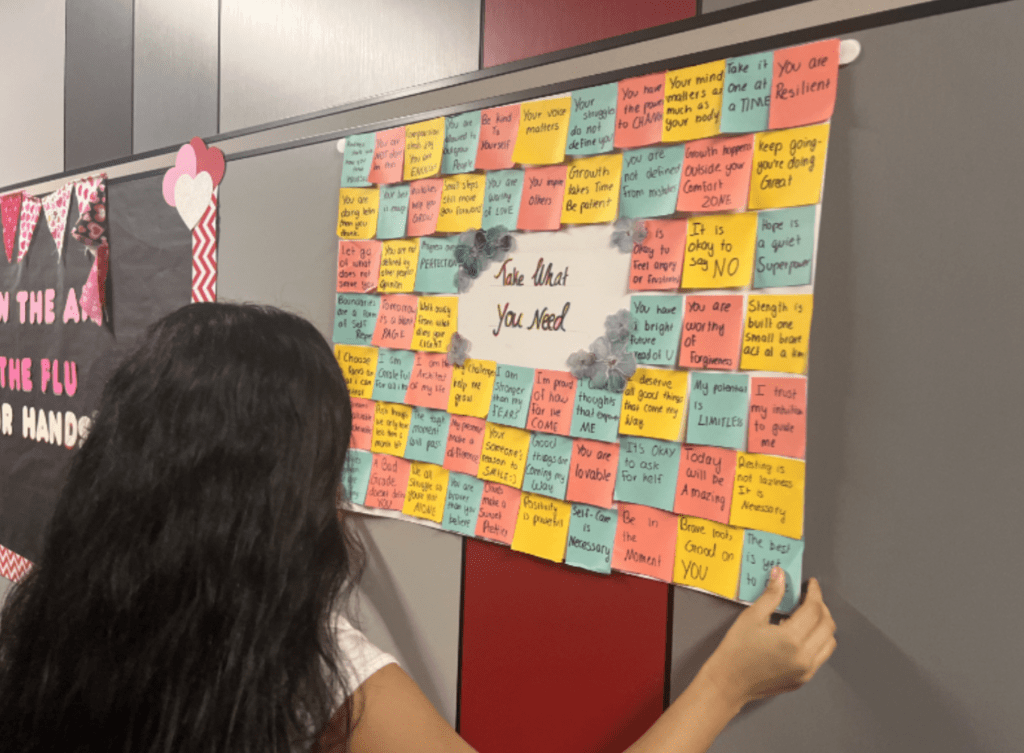 N THE A
THE FLU
R HANDS
Take What
You Need
Be kind
To
Yourself
Your voice
matters
Your
struggles
do not
define you
You have
the power
to CHANGE
Your mind
matters as
much as
your body
Take it
one at
a TIME
You are
Resilient
You are
doing better
than you
think
Small steps
still move
you forward
You are
worthy
of LOVE
You inspire
others
Growth
takes Time
Be patient
you are
not defined
from mistakes
Growth happens
outside your
Comfort
ZONE
keep going-
you're doing
Great
Let go
of what
does not
serve you
You are no
defined by
other people
opinion
Progress over
PERFECTION
is
Okay to
feel angry
or
It is
okay to
say NO
Hope is
a quiet
Superpower
Boundaries
are a form
of Self
Tomorrow
is a blank
PAGE
Walk away
from what
dims your
LIGHT
You have
a bright
future
ahead of U
You are
worthy
of
Forgiveness
Strength is
built one
small brave
act at a time
I choose
I am
Grateful
for
I am the
Architect
of my life
My challenges
help me
grow
I am
stronger
than my
FEARS!
I'm proud
of how
far I've
COME
I
thoughts
that
ME
I deserve
all good things
that come my
Way
My potential
is
LIMITLESS
I trust
my intuition
to guide
me
The tough
moment
will pass
My presence
make a
difference
Your
someone's
reason to
SMILE:)
Good
things are
Coming my
Way
You are
lovable
It's OKAY
to ask
for help
Today
will be
Amazing
Resting is
not laziness
It is
Necessary
A Bad
Grade
doesn't define
YOU
We all
struggle
your not
ALONE
You are
braver
than you
believe
Clouds
make a
Sunset
Prettier
Positivity
is powerful
Self-Care
is
Necessary
Be in
the
Moment
Brave looks
Good on
YOU
The best
is yet
to